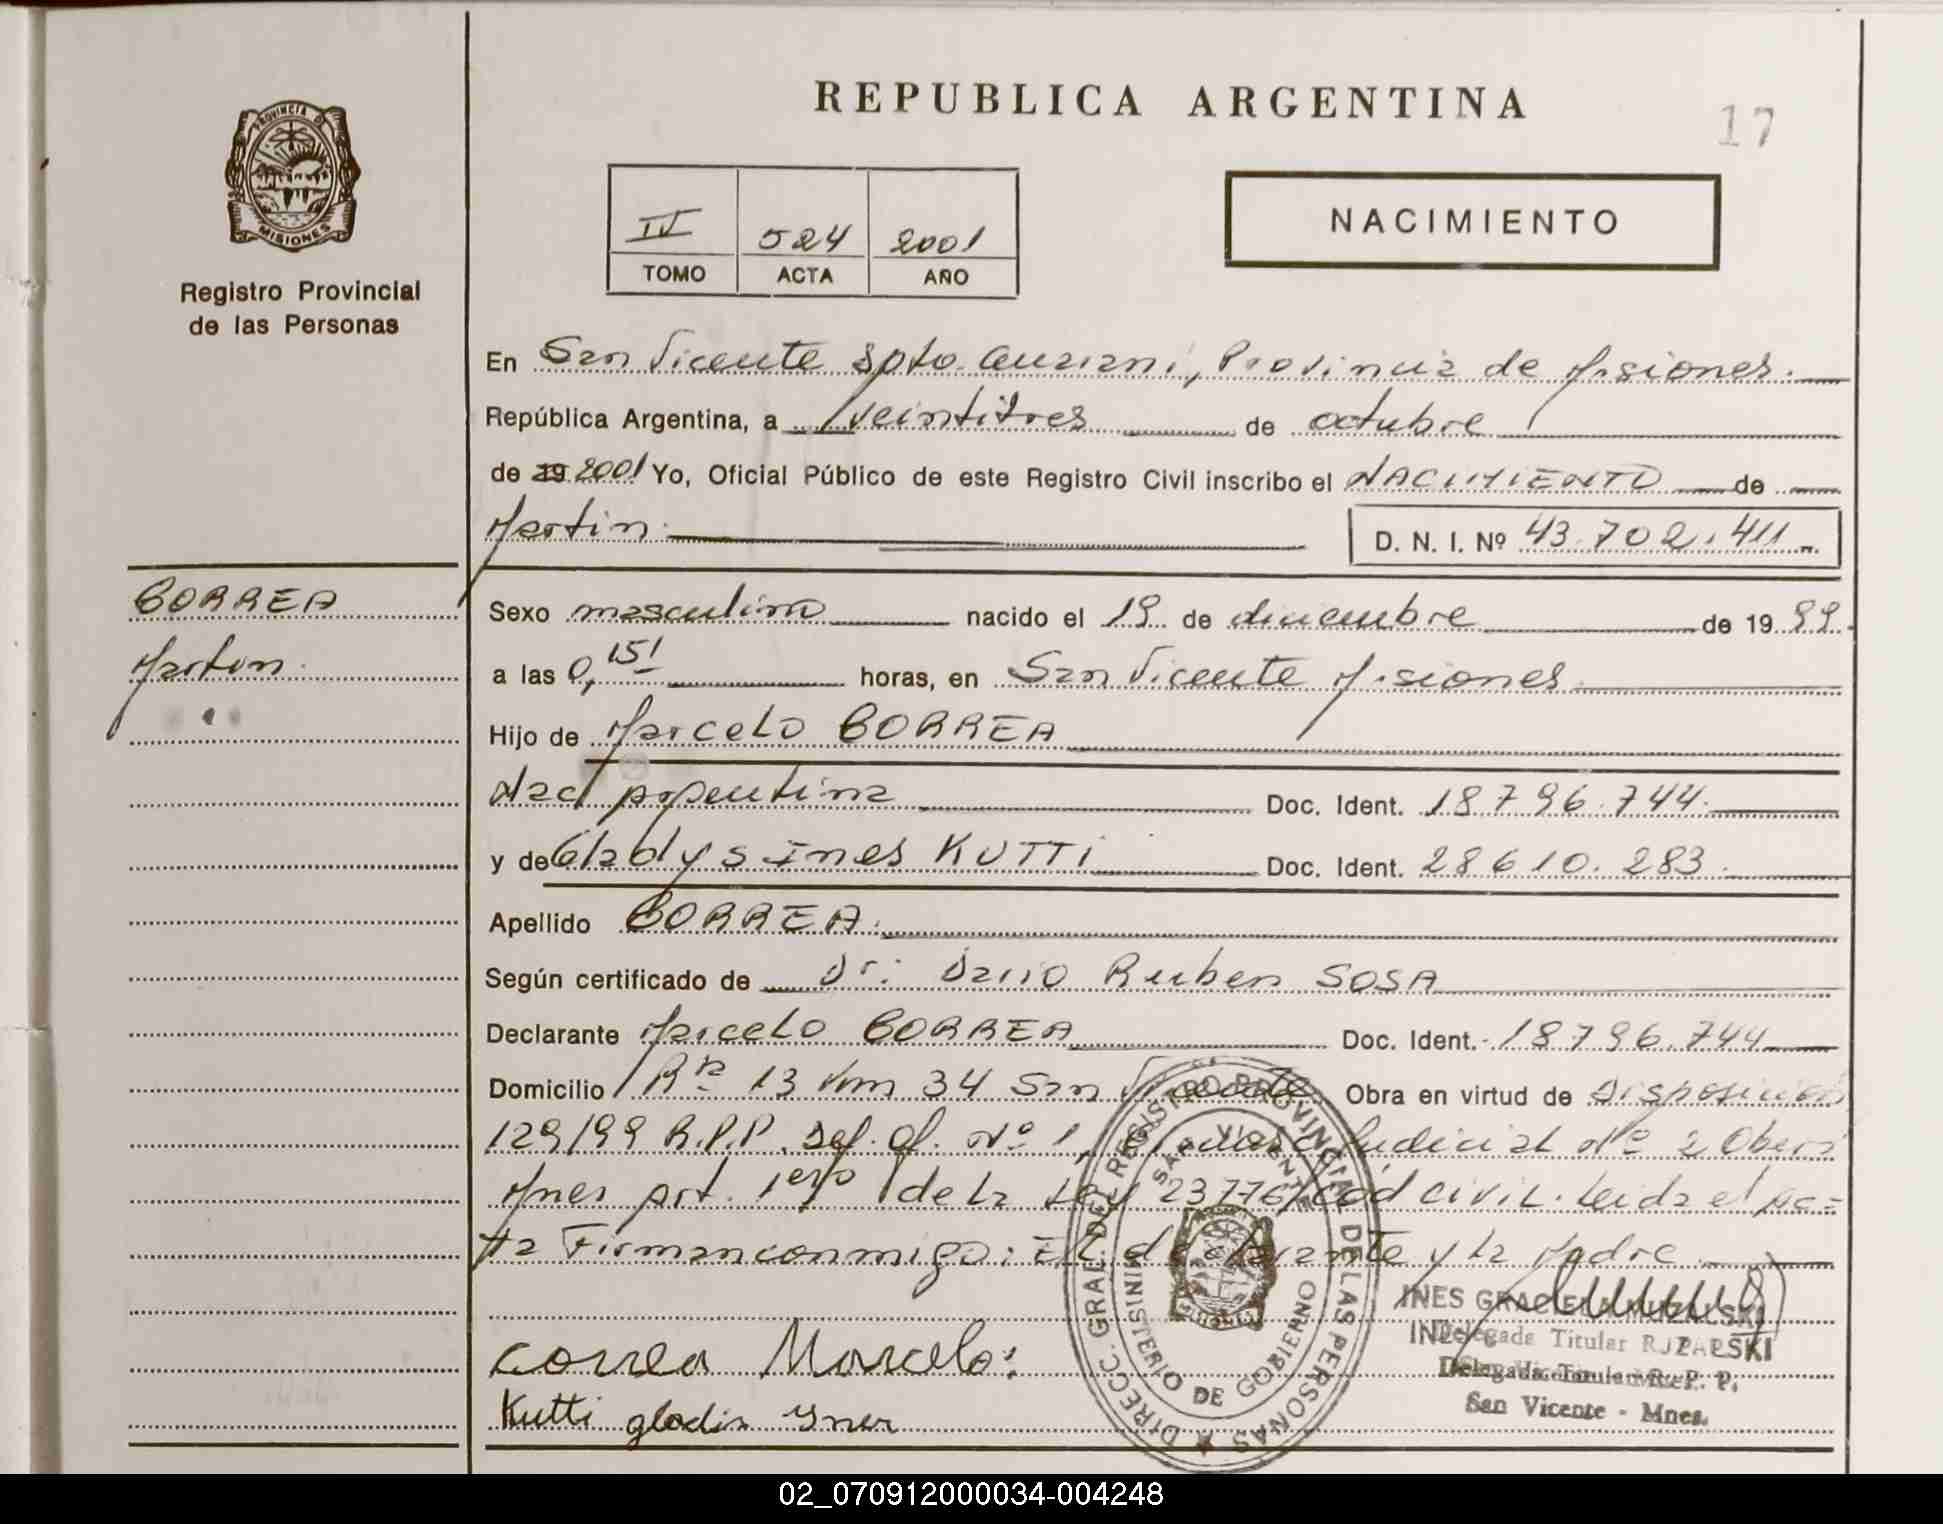 REPUBLICA ARGENTINA
17
PROVINCIA DE
MISIONES
Registro Provincial
de las Personas
IV 524 2001
TOMO ACTA AÑO
NACIMIENTO
En San Vicente Dpto. Guarani, Provincia de Misiones.
República Argentina, a veintitres de octubre
de 19 2001 Yo, Oficial Público de este Registro Civil inscribo el NACIMIENTO de
Martin. D. N. I. Nº 43.702.411
CORREA
Martin.
Sexo masculino nacido el 19 de diciembre de 19 99.
a las 0,15' horas, en San Vicente Misiones
Hijo de Marcelo CORREA
Nac Argentina Doc. Ident. 18796.744.
y de Gladys Ines KUTTI Doc. Ident. 28610.283.
Apellido CORREA.
Según certificado de Dr: Dario Ruben SOSA
Declarante Marcelo CORREA Doc. Ident. 18796.744
Domicilio Rta 13 km 34 San Vicente Obra en virtud de Disposicion
129/99 R.P.P. Def. Of. Nº 1, Judicial Nº 2 Obera
Mnes Art. 1ero de la Ley 23776/ Cod Civil. Leida el Ac=
ta Firman conmigo: El declarante y la Madre.
Correa Marcelo:
Kutti gladis Ynes
DIREC. GRAL. DEL REGISTRO PROVINCIAL DE LAS PERSONAS
SAN VICENTE
MINISTERIO DE GOBIERNO
INES GRACIELA
Delegada Titular R. P. P.
San Vicente - Mnes.
02_070912000034-004248